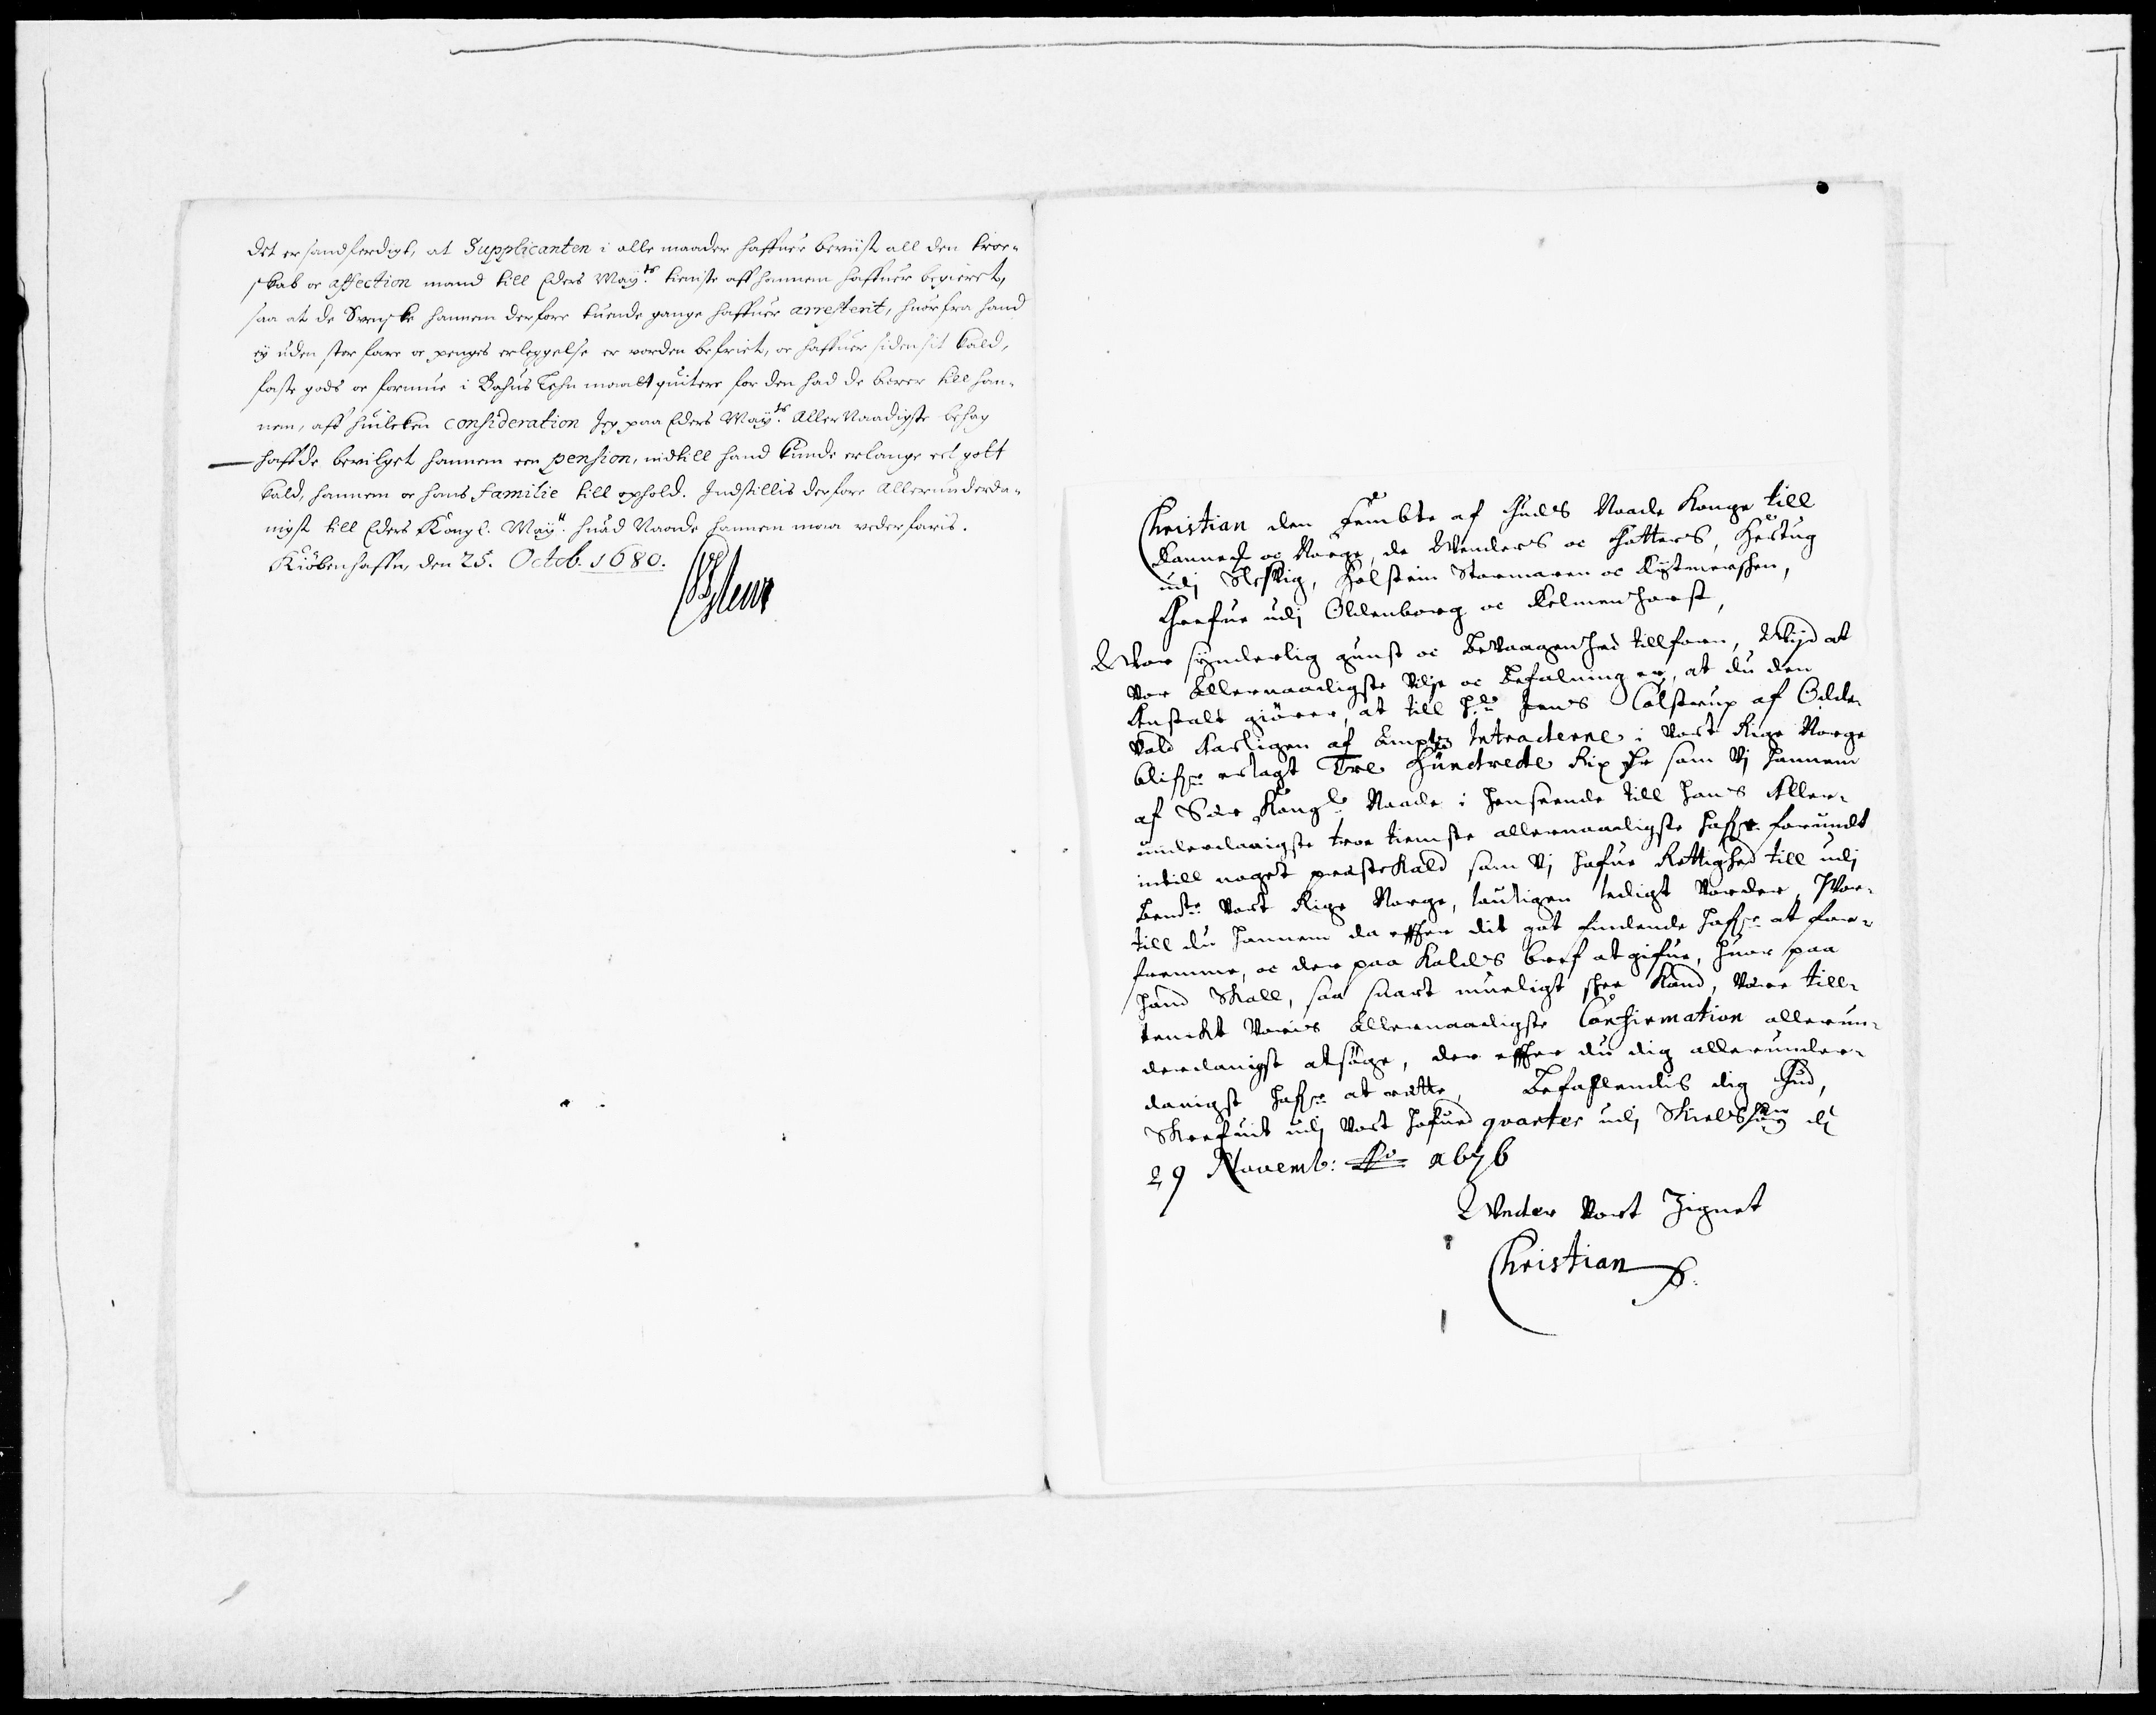 Det er sandferdigt, at Supplicanten i alle maader haffuer beviist all den troe-
skab oc affection mand till Eders Mayts tieniste aff hannem haffuer begieret,
saa at de Svenske hannem derfore tuende gange haffuer arresterit, huorfra hand
ej uden stor fare oc penges erleggelse er vorden befriet, oc haffuer siden sit kald,
faste gods oc formue i Bahus Lehn maatt quitere for den had de berer till han-
nem, aff huilcken consideration Jeg paa Eders Mayts Aller Naadigste behag
haffde bevilget hannem een pension, indtill hand kunde erlange ett gott
kald, hannem oc hans familie till ophold. Indstillis derfore Allerunderda-
nigst till Eders Kongl. Mayt huad Naade hannem maa vederfaris.
Kiöbenhaffn, den 25. Octob. 1680.
Christian den Fembte af Guds Naade Konge till
Danmark oc Norge, de Wenders oc Gotters, Hertug
udj Slesvig, Holstein Stormaren oc Dytmerschen,
Grefue udj Oldenborg oc Delmenhorst,
Wor synderlig gunst oc bevaagenhed tillforn, Wijd at
vor Allernaadigste vilje oc befalning er, at du den
Anstalt giörer, at till Jens Colstrup af Odde-
vald Aarligen af Intraderne i vort Rige Norge
blifver erlagt Tre Hundrede Rix dr som Vj hannem
af Sær Kongl. Naade i henseende till hans Aller-
underdanigste troe tieniste allernaadigste hafver forundt
indtill noget præstekald som Vj hafue Rettighed till udj
bemte vort Rige Norge, ledigt vorder, hvor-
till du hannem da efter dit got findende hafver at for-
fremme, oc der paa Kalds bref at gifue, huor paa
hand skall, saa snart mueligt skee kand, være till-
tenckt voris Allernaadigste Confirmation allerun-
derdanigst at söge, der efter du dig allerunder-
danigst hafver at rætte, Befahlendis dig Gud,
Skrefuit udj vort hofued quarter udj d
29 Novemb: Ao 1676
Under vort Zignet
Christian